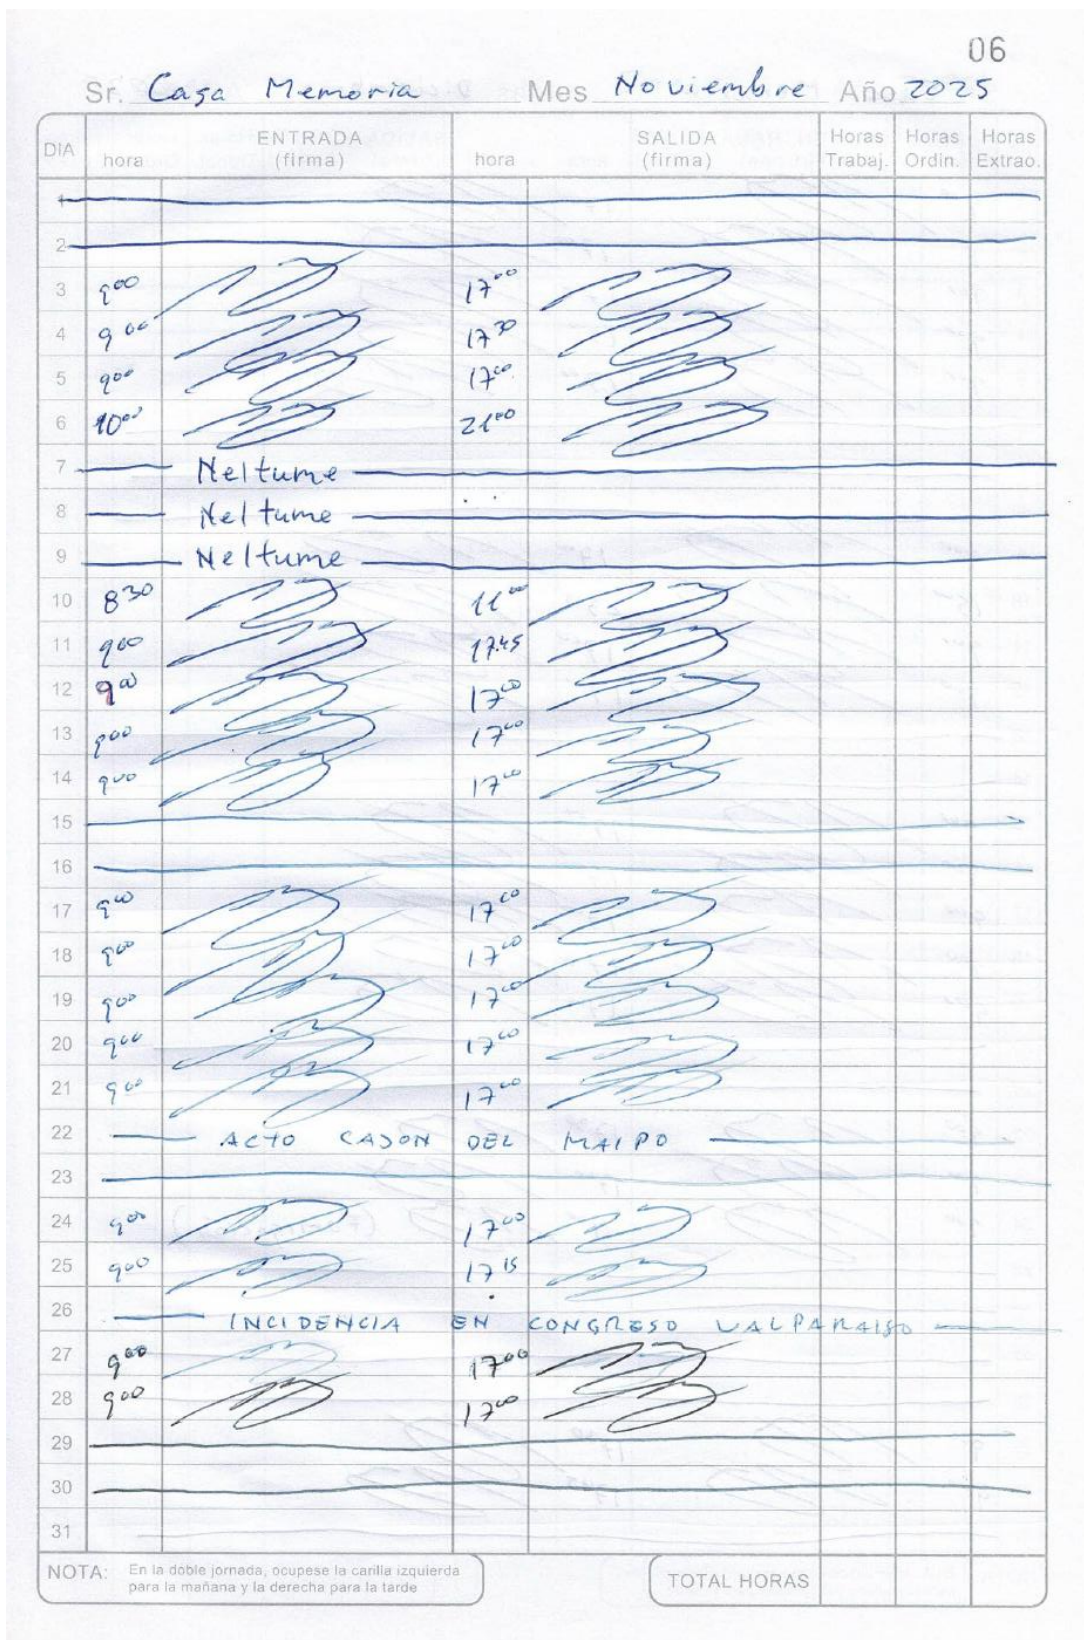 06
Sr. Casa Memoria Mes Noviembre Año 2025
DIA hora ENTRADA (firma) hora SALIDA (firma) Horas Trabaj. Horas Ordin. Horas Extrao.
1
2
3 9:00 17:00
4 9:00 17:30
5 9:00 17:00
6 10:00 21:00
7 Neltume
8 Neltume
9 Neltume
10 8:30 11:00
11 9:00 17:45
12 9:00 17:00
13 9:00 17:00
14 9:00 17:00
15
16
17 9:00 17:00
18 9:00 17:00
19 9:00 17:00
20 9:00 17:00
21 9:00 17:00
22 ACTO CAJON DEL MAIPO
23
24 9:00 17:00
25 9:00 17:15
26 INCIDENCIA EN CONGRESO VALPARAISO
27 9:00 17:00
28 9:00 17:00
29
30
31
NOTA: En la doble jornada, ocupese la carilla izquierda
para la mañana y la derecha para la tarde
TOTAL HORAS